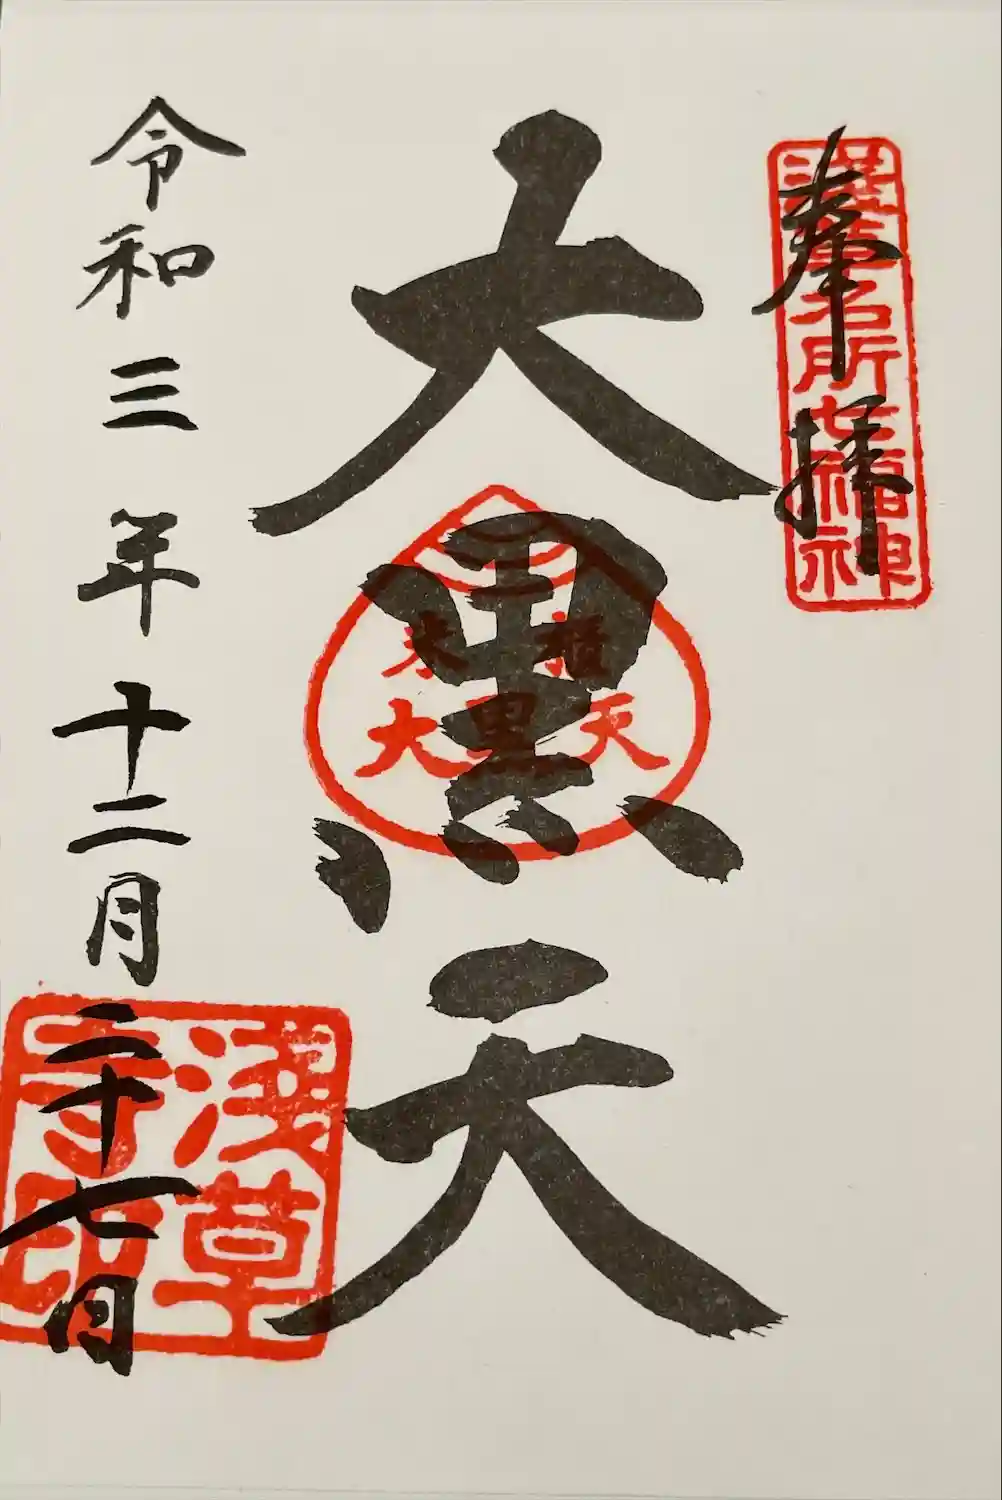 奉拝
浅草名所七福神
大黒天
米櫃
大黒天
令和三年十二月二十七日
浅草
寺印